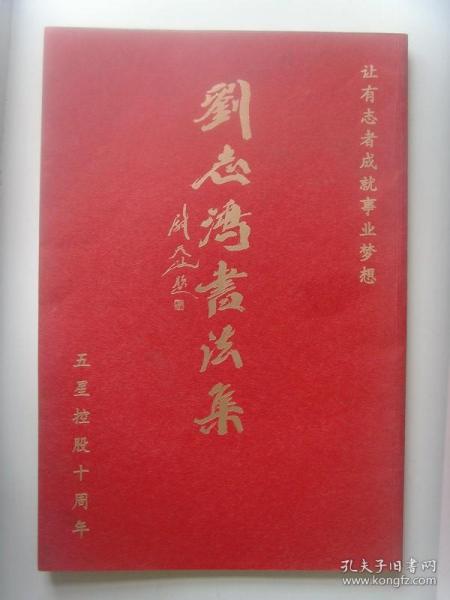 让有志者成就事业梦想
劉志灣書法集
五星控股十周年
孔夫子旧书网
www.kongfz.com